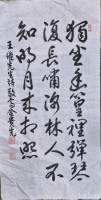 獨坐幽篁裡彈琴
復長嘯深林人不
知明月來相照
王維先生詩